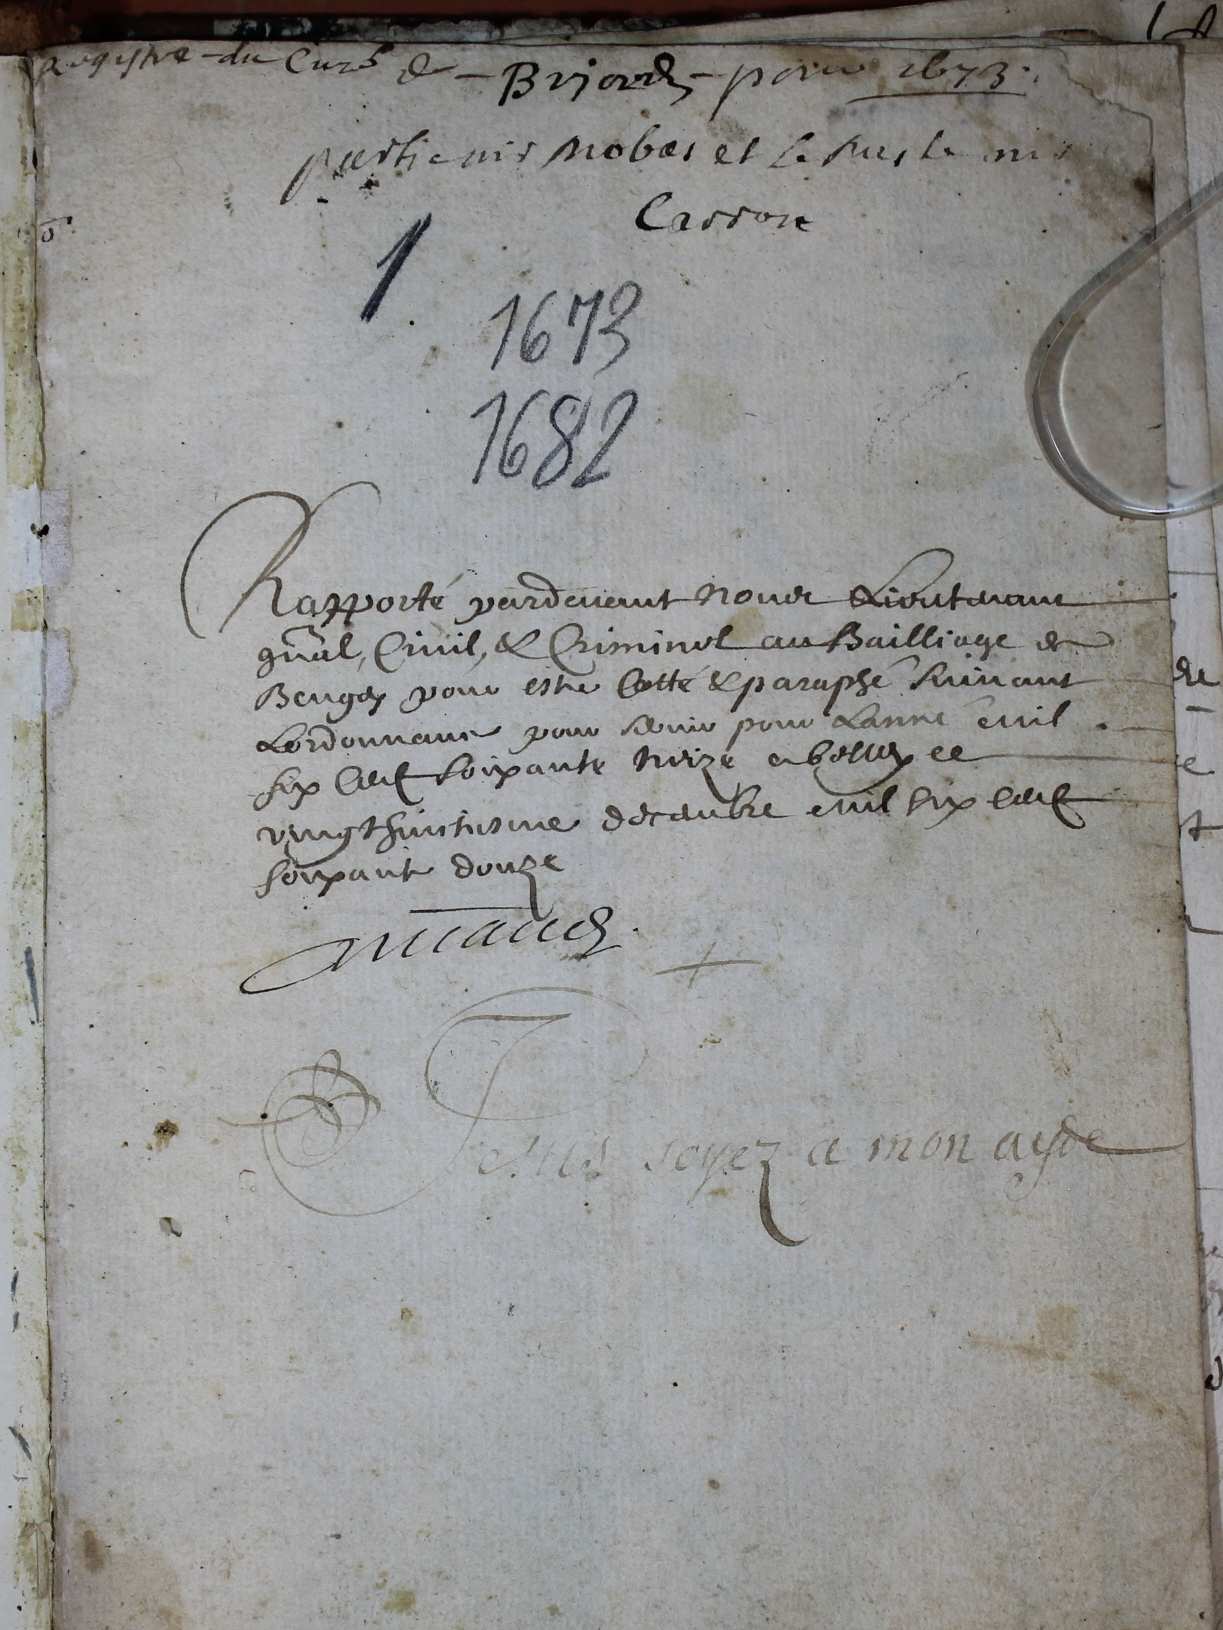 Registre du Curé de Briord pour 1673
partie mis Nobas et le reste mis
Carron
1
1673
1682
Rapporté pardevant nous Lieutenant
gnal, Civil, & Criminel au Bailliage de
Beugey pour estre Cotté & paraphé suivant
Lordonnance pour servir pour Lanné mil
six Cent soixante treize a belley ce
vingt huictiesme decembre mil six Cent
soixante douze
Jesus soyez a mon ayde